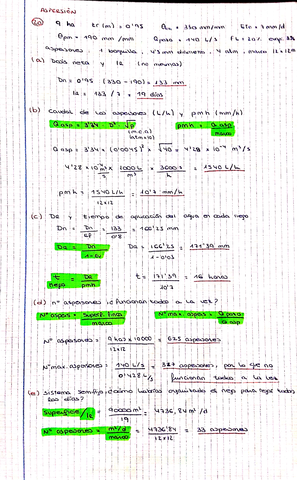 ASPERSIÓN
2a) 9 ha tr (m) = 0'95 θcc = 330 mm/m ETc = 7 mm/d
θpm = 190 mm/mm Qmáx = 140 L/s FL = 20% exp. 3%
aspersores: 1 boquilla, 4'5 mm diámetro, 4 atm, marco 12x12
(a) Dosis neta y IR (no mermas)
Dn = 0'95 (330-190) = 133 mm
IR = 133 / 7 = 19 días
(b) Caudal de los aspersores (L/h) y pmh (mm/h)
Q asp = 3'34 · D² · √P pmh = Q asp / marco
Q asp = 3'34 × (0'0045)² × √40 = 4'28 × 10⁻⁴ m³/s
4'28 × 10⁻⁴ m³/s × 1000 L / m³ × 3600 s / h = 1540 L/h
pmh = 1540 L/h / 12x12 = 10'7 mm/h
(c) Da y tiempo de aplicación del agua en cada riego
Dn = Dn / Ef = 133 / 0'8 = 166'25 mm
Da = Dn / 1-Ev Da = 166'25 / 1-0'03 = 171'39 mm
t riego = Da / pmh t = 171'39 / 10'7 = 16 horas
(d) nº aspersores ¿funcionan todos a la vez?
Nº aspers = Superf. finca / marco Nº max. aspers = Q total / Q asp
Nº aspersores = 9 ha × 10000 / 12x12 = 625 aspersores
Nº max. aspersores = 140 L/s / 0'428 L/s = 327 aspersores, por lo que no
funcionan todos a la vez
(e) Sistema semifijo, ¿cómo habría organizado el riego para regar todos
los días?
Superficie / IR = 90000 m² / 19 = 4736,84 m²/d
Nº aspersores = m²/d / marco = 4736'84 / 12x12 = 33 aspersores